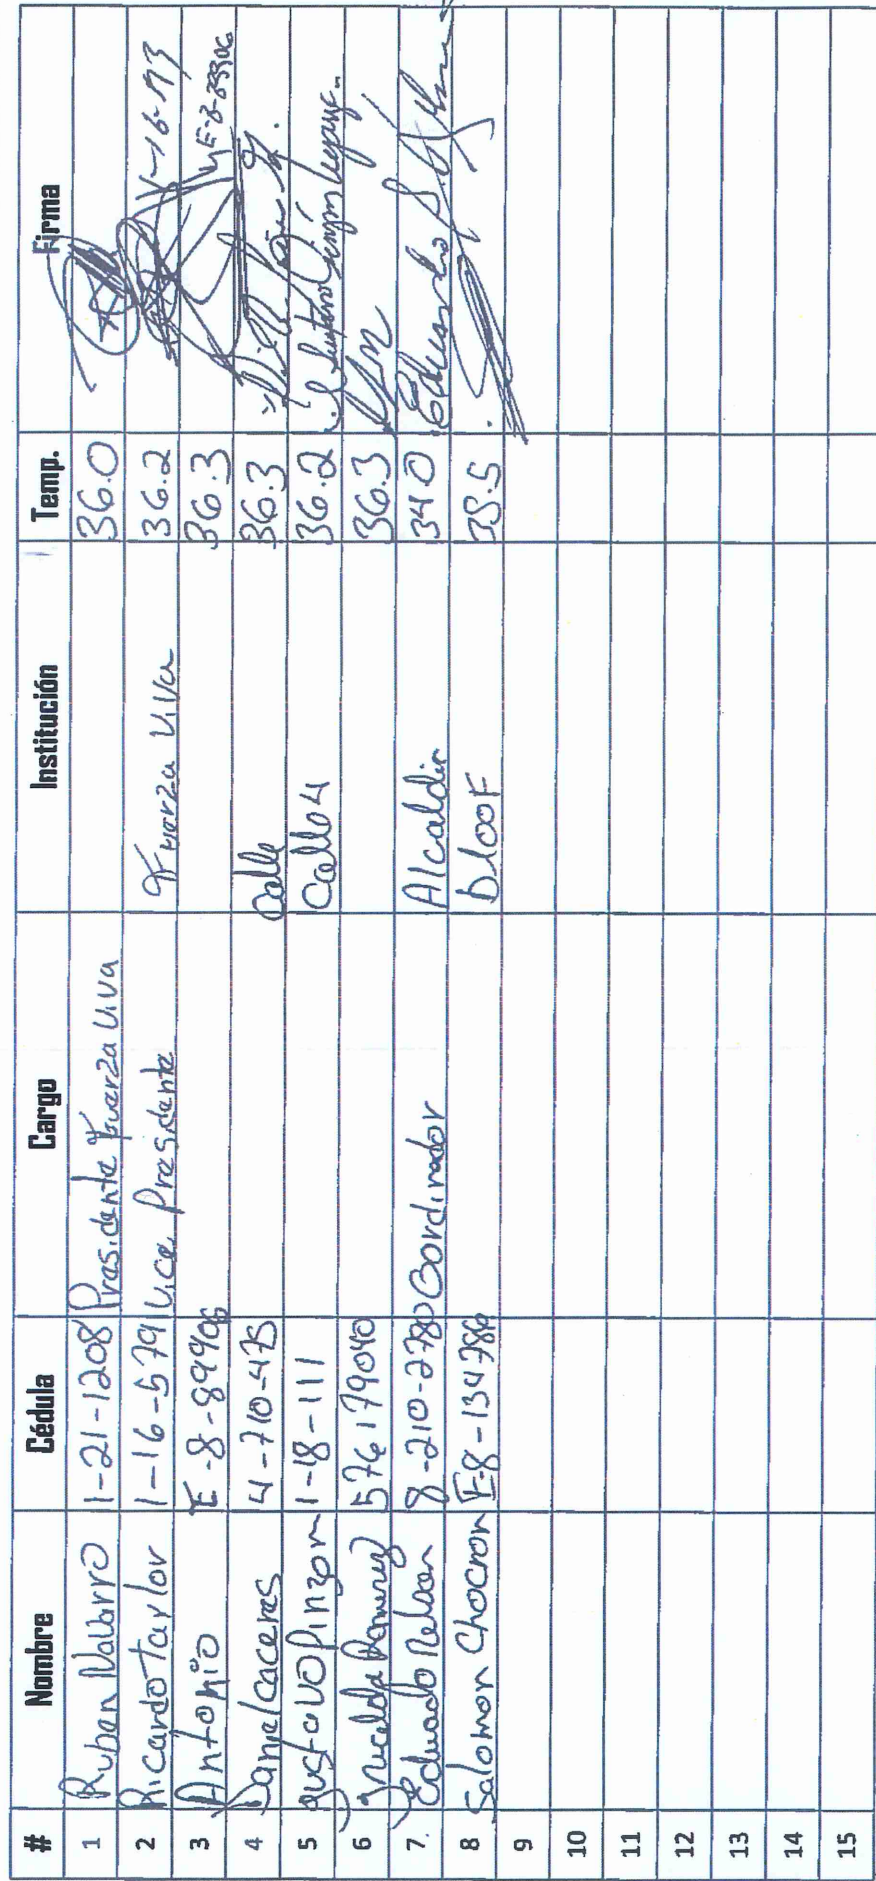 # Nombre Cédula Cargo Institución Temp. Firma
1 Ruben Navarro 1-21-1208 Presidente Fuerza Viva 36.0
2 Ricardo Taylor 1-16-579 Vice Presidente Fuerza Viva 36.2
3 Antonio E-8-89906 36.3 E-8-89906
4 Daniel Caceres 4-710-475 Calle 36.3
5 gustavo Pinzon 1-18-111 Calle 4 36.2
6 Ramirez 576179040 36.3
7. Eduardo Nelson 8-210-2780 Cordinador Alcaldia 34.0 Eduardo
8 Salomon Chocron E-8-134786
9
10
11
12
13
14
15